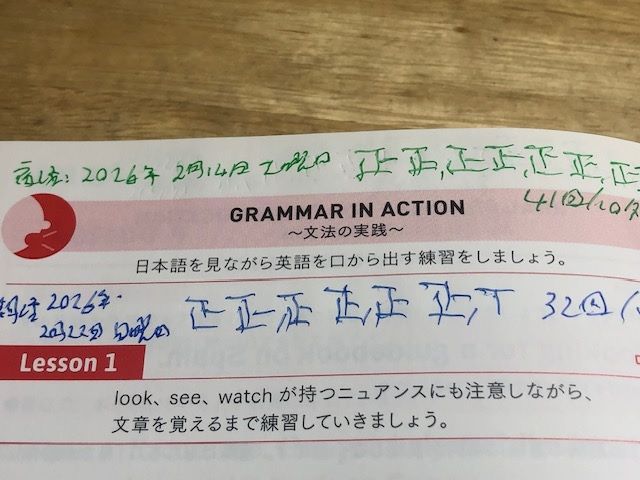 夜で: 2026年 2月14日 土曜日 正正,正正,正正,正
41回/10分
GRAMMAR IN ACTION
〜文法の実践〜
日本語を見ながら英語を口から出す練習をしましょう。
2026年 正正,正正,正正,下 32回/
2月22日 日曜日
Lesson 1
look、see、watch が持つニュアンスにも注意しながら、
文章を覚えるまで練習していきましょう。